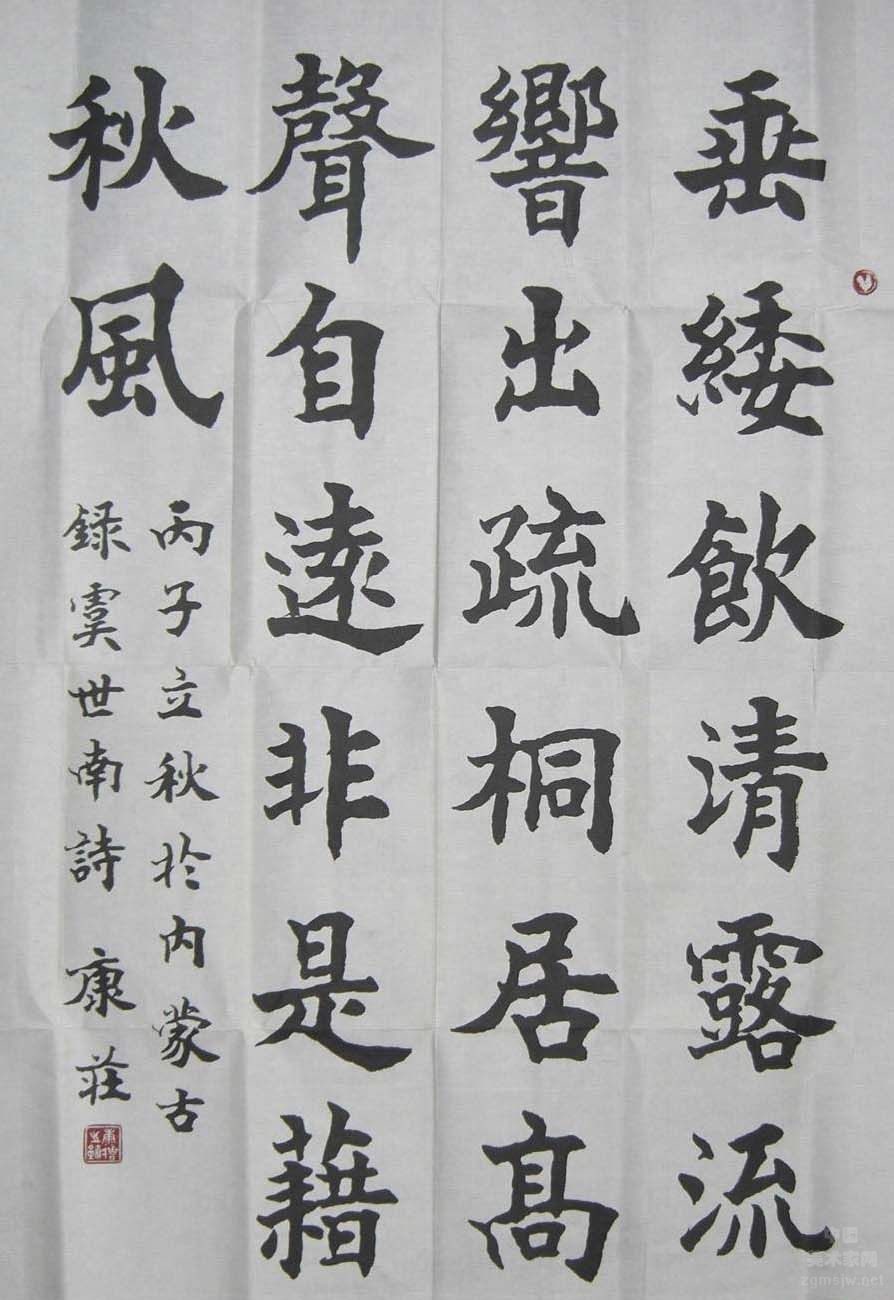 垂緌飲清露流
響出疏桐居高
聲自遠非是藉
秋風
丙子立秋於内蒙古
録虞世南詩 康莊
中国
美术家网
zgmsjw.net